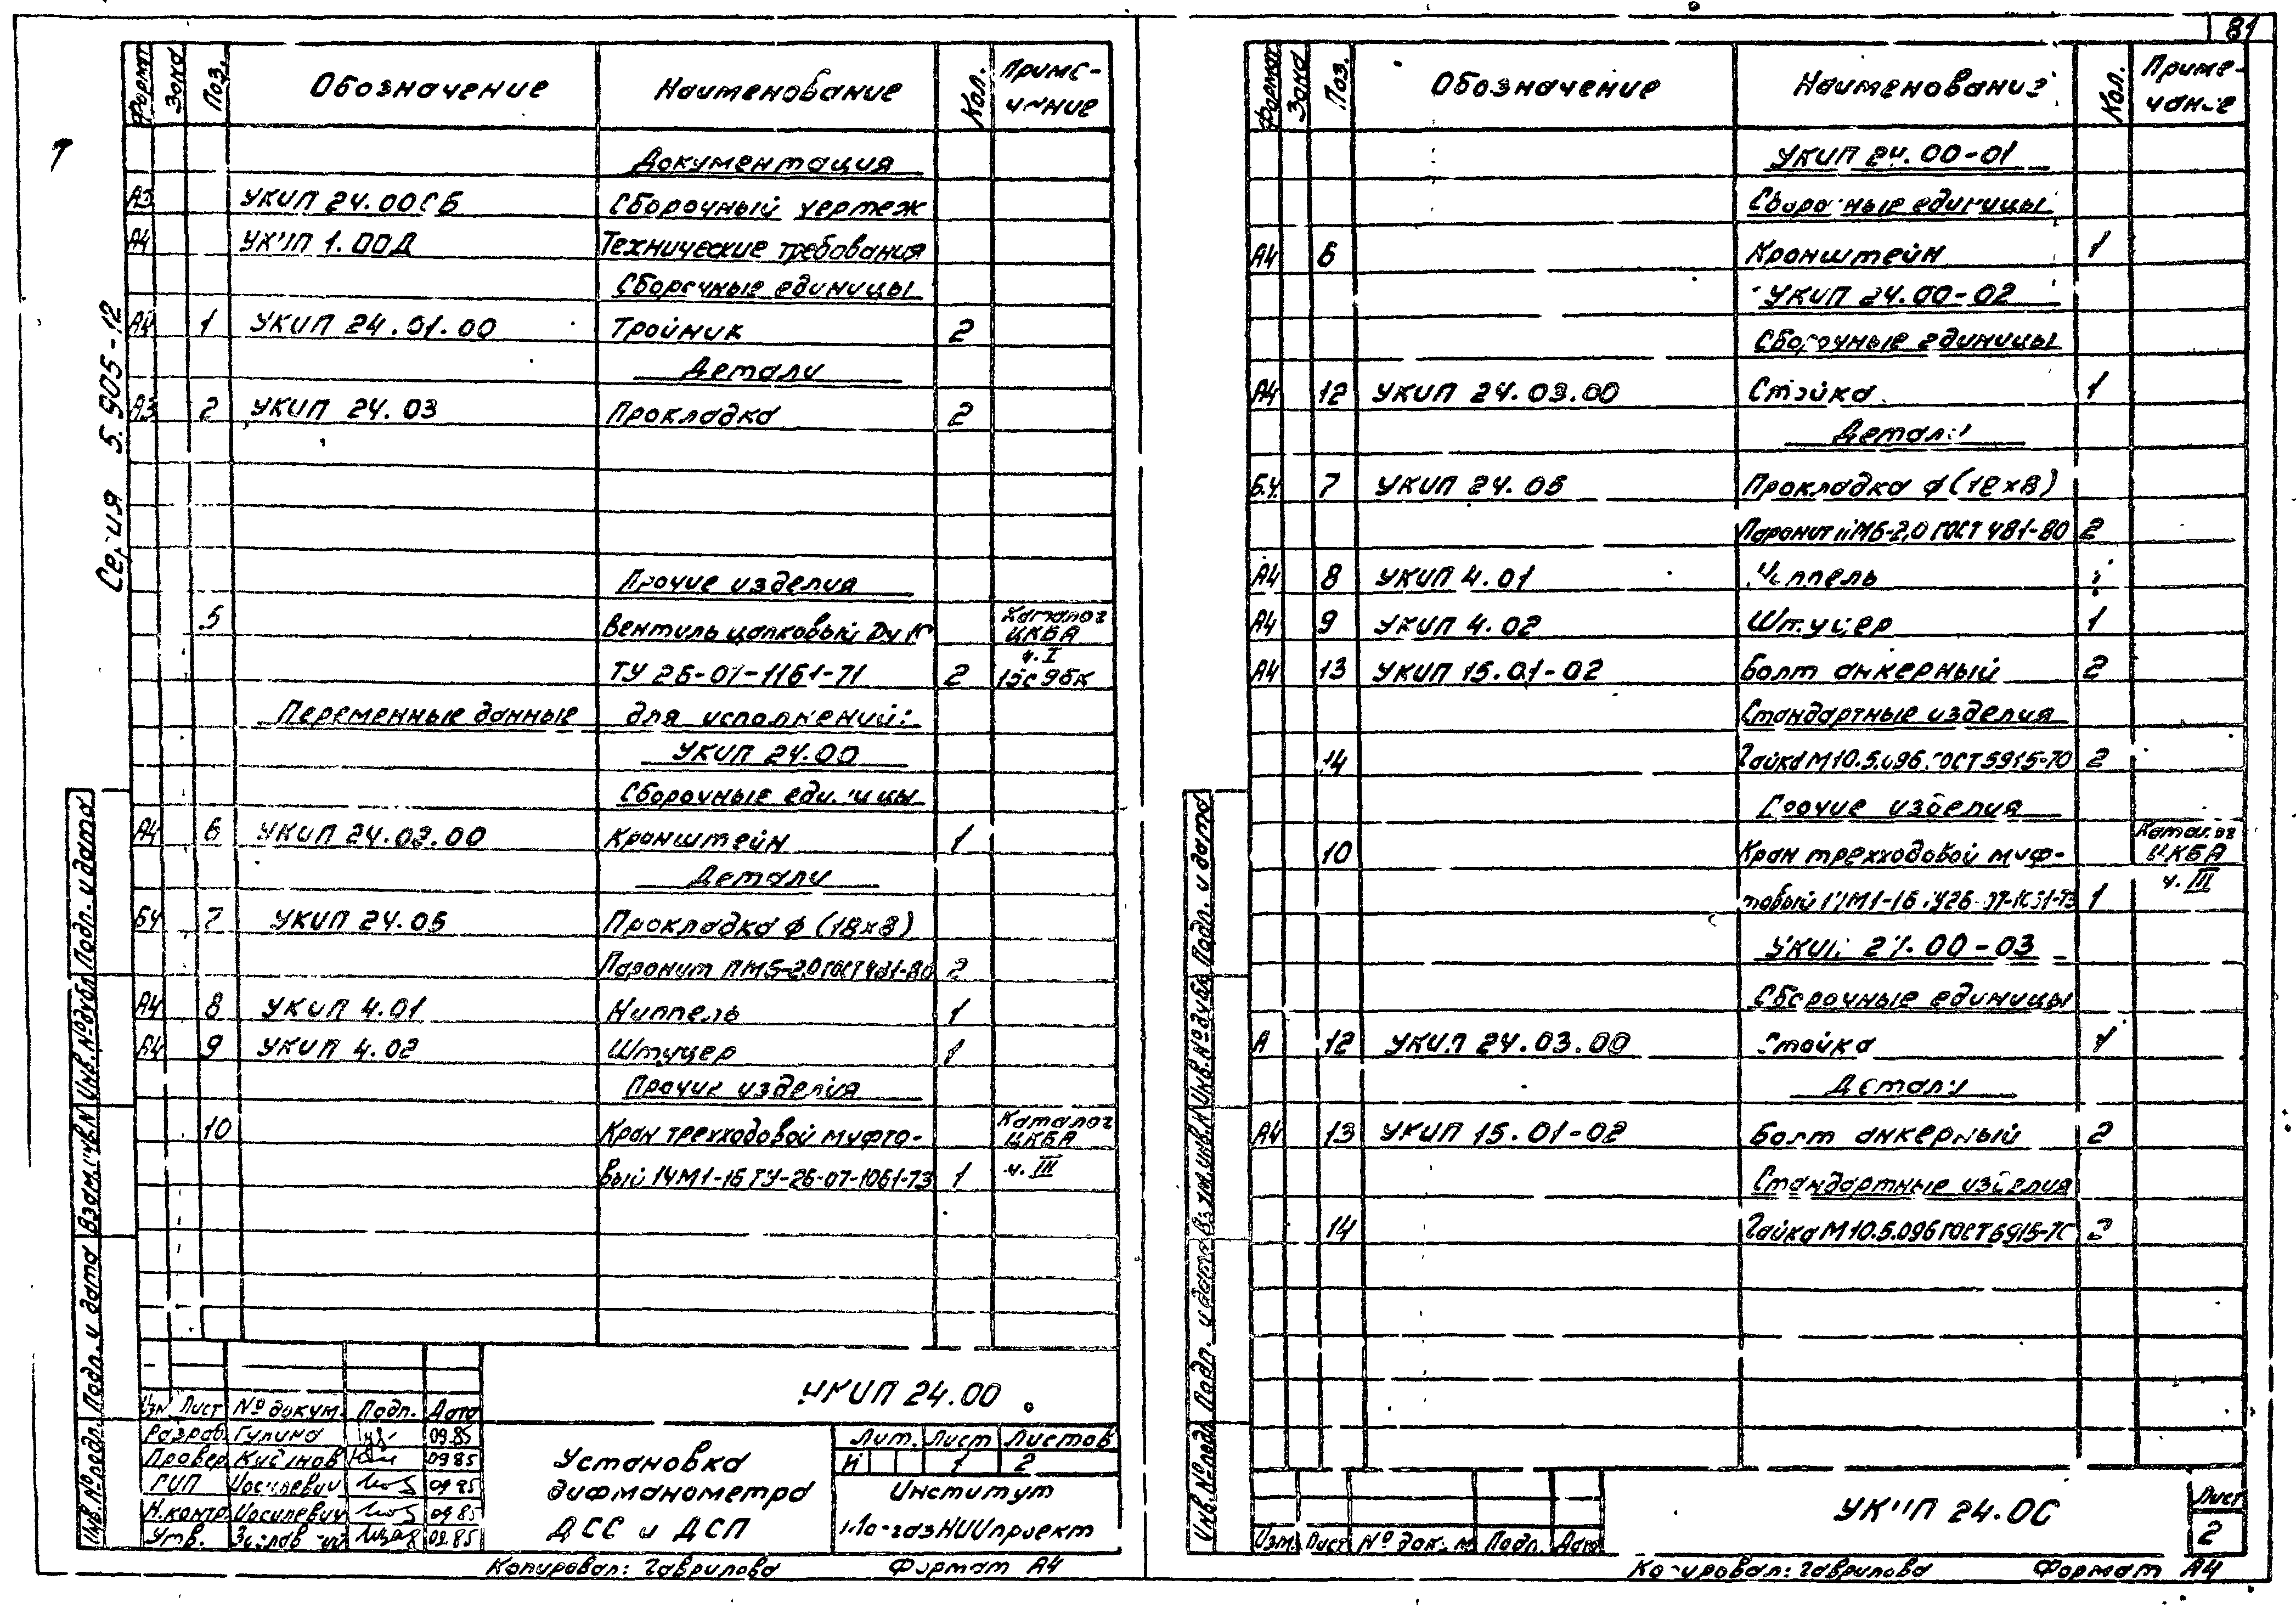 81
Серия 5.905-12
Формат Зона Поз. Обозначение Наименование Кол. Примечание
Документация
А3 УКИП 24.00СБ Сборочный чертеж
А4 УКИП 1.00Д Технические требования
Сборочные единицы
А4 1 УКИП 24.01.00 Тройник 2
Детали
А3 2 УКИП 24.03 Прокладка 2
Прочие изделия
5 Вентиль цапковый Ду Каталог ЦКБА
ч. I
ТУ 26-07-1161-71 2
Переменные данные для исполнений:
УКИП 24.00
Сборочные единицы
А4 6 УКИП 24.02.00 Кронштейн 1
Детали
БЧ 7 УКИП 24.05 Прокладка ф (18×8)
Паронит ПМБ-2,0 ГОСТ 481-80 2
А4 8 УКИП 4.01 Ниппель 1
А4 9 УКИП 4.02 Штуцер 1
Прочие изделия
10 Кран трехходовой муфто- Каталог ЦКБА
вый 14М1-16 ТУ-26-07-1061-73 1 ч. III
Инв. № подл. Подп. и дата Взам. инв. № Инв. № дубл. Подп. и дата
УКИП 24.00
Изм. Лист № докум. Подп. Дата
Разраб. Гулина 09.85
Провер. 09.85
ГИП Иосилевич 09.85
Н.контр. Иосилевич 09.85
Утв. 09.85
Установка
дифманометра
ДСС и ДСП
Лит. Лист Листов
И 1 2
Институт
МосгазНИИпроект
Копировал: Гаврилова Формат А4
Формат Зона Поз. Обозначение Наименование Кол. Примечание
УКИП 24.00-01
Сборочные единицы
А4 6 Кронштейн 1
УКИП 24.00-02
Сборочные единицы
А4 12 УКИП 24.03.00 Стойка 1
Детали
БЧ 7 УКИП 24.05 Прокладка ф (18×8)
Паронит ПМБ-2,0 ГОСТ 481-80 2
А4 8 УКИП 4.01 Ниппель
А4 9 УКИП 4.02 Штуцер 1
А4 13 УКИП 15.01-02 Болт анкерный 2
Стандартные изделия
14 Гайка М10.5.096 ГОСТ 5915-70 2
Прочие изделия
10 Кран трехходовой муф- Каталог ЦКБА
товый 14М1-16 ТУ26-07-1061-73 1 ч. III
УКИП 24.00-03
Сборочные единицы
А 12 УКИП 24.03.00 Стойка 1
Детали
А4 13 УКИП 15.01-02 Болт анкерный 2
Стандартные изделия
14 Гайка М10.5.096 ГОСТ 5915-70 2
Инв. № подл. Подп. и дата Взам. инв. № Инв. № дубл. Подп. и дата
Изм. Лист № докум. Подп. Дата
УКИП 24.00
Лист
2
Копировал: Гаврилова Формат А4